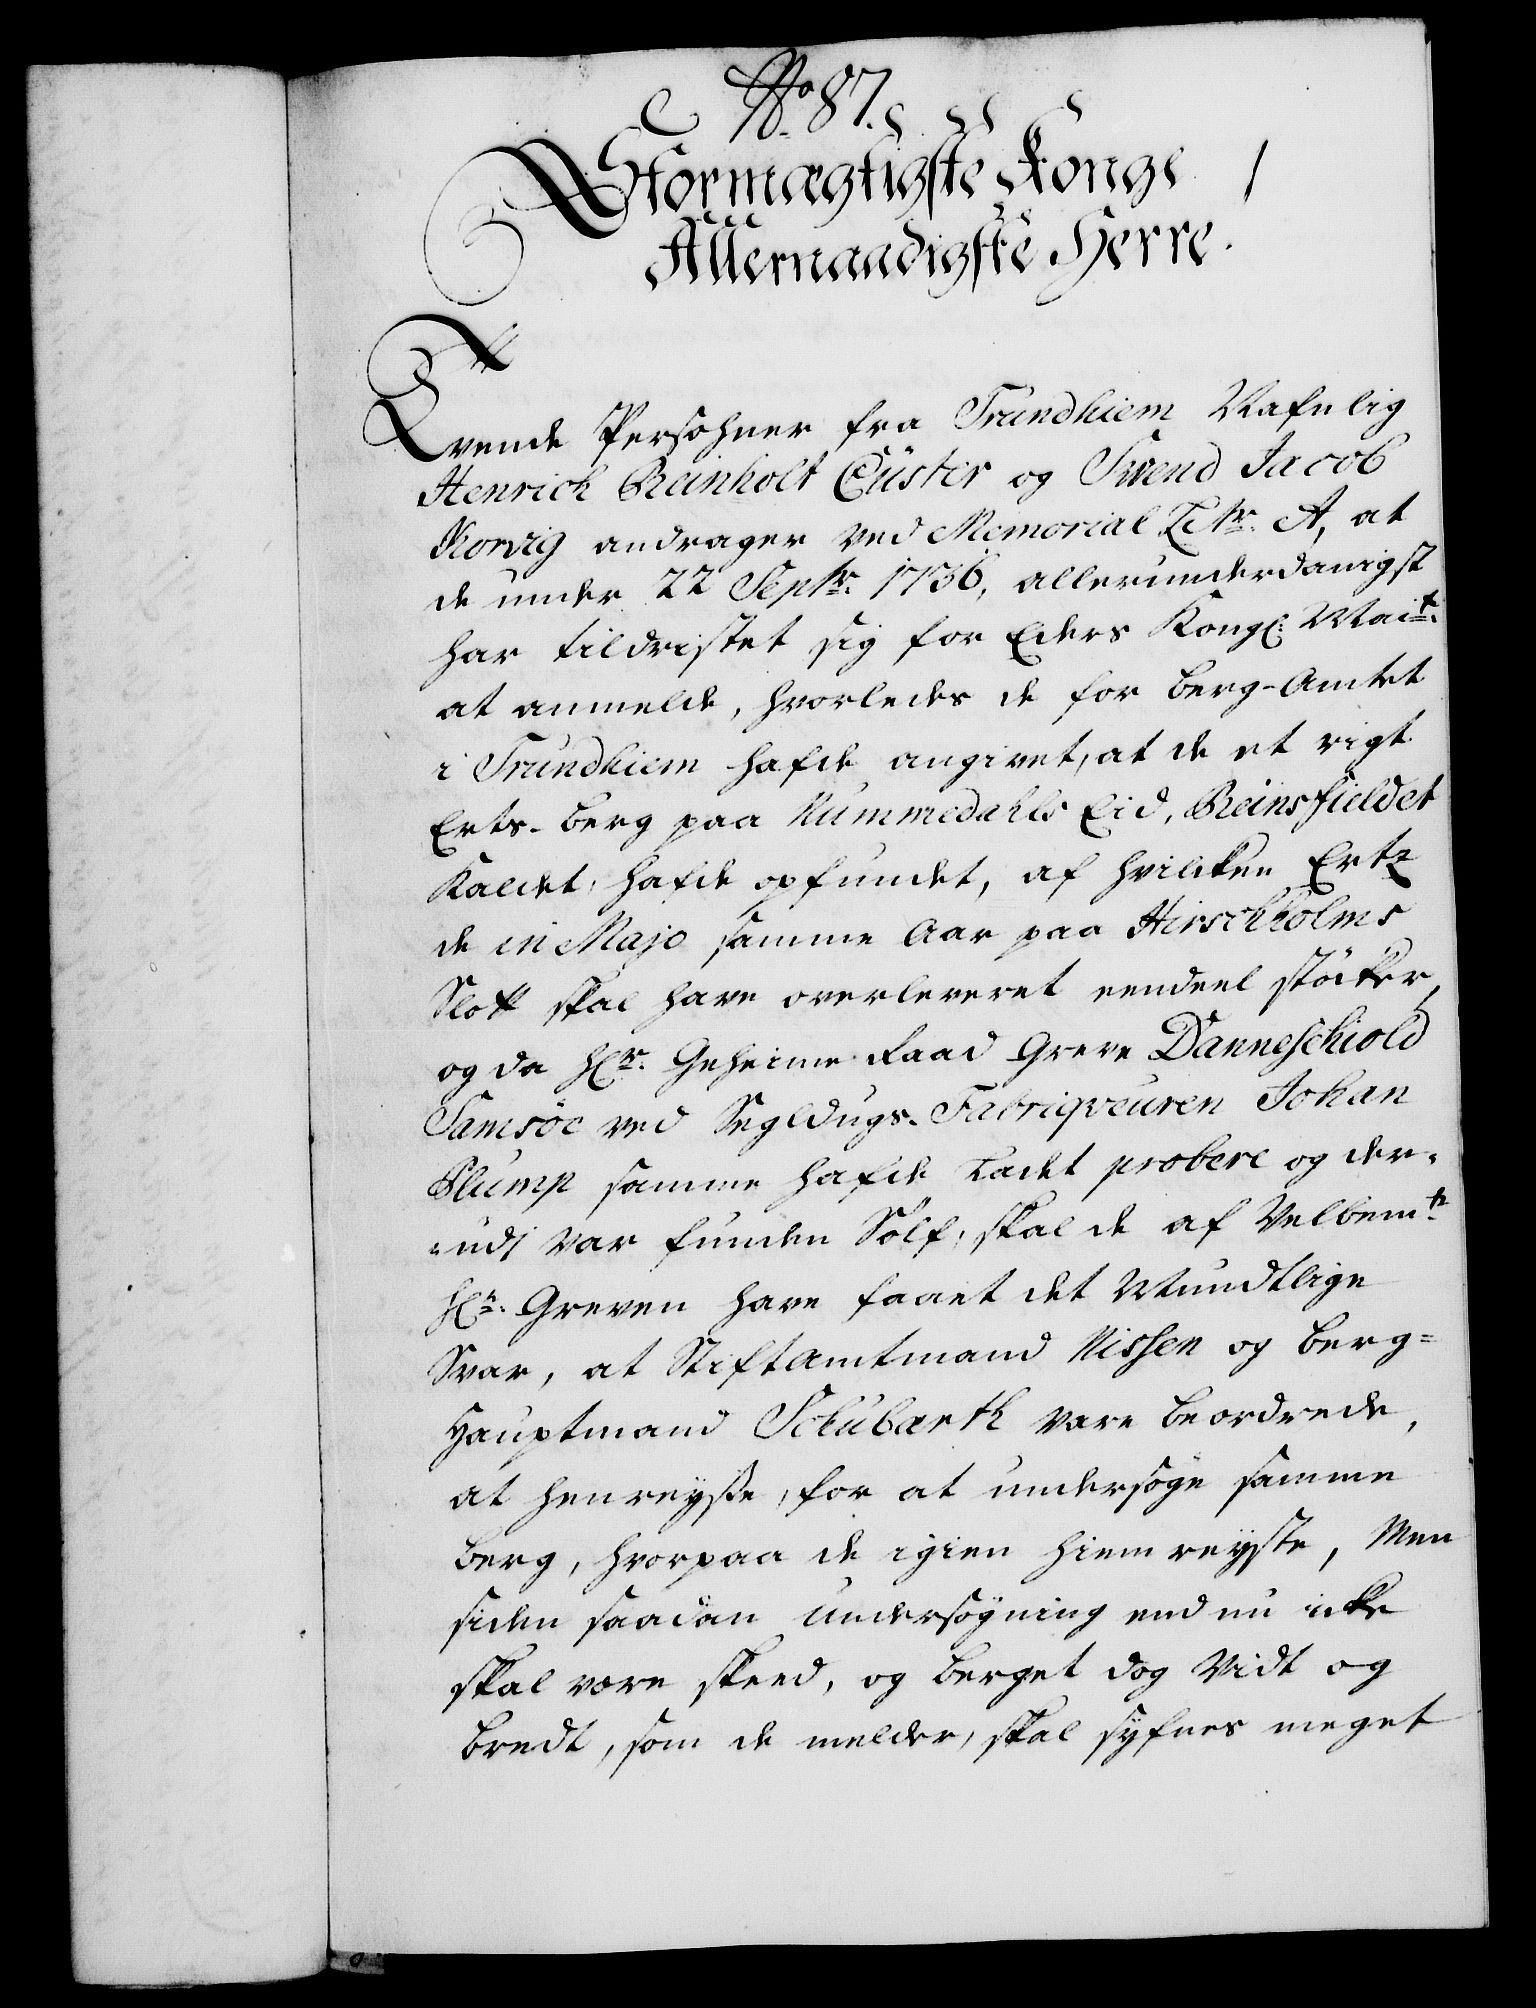 No. 87.
Stormægtigste Konge
Allernaadigste Herre.
Tvende Persohner fra Trundhiem Nafnlig
Henrich Reinholt Cüster og Svend Jacob
Norvig andrager ved Memorial Litr. A, at
de under 22 Septr. 1736, allerunderdanigst
har tildristet sig for Eders Kongl: Mait.
at anmelde, hvorledes de for Berg-Amtet
i Trundhiem hafde angivet, at de et rigt
Erts-berg paa Nummedahls Eid, Reinsfieldet
Kaldet, hafde opfundet, af hvilcken Ertz
de in Majo samme Aar paa Hirschholms
Slott skal have overleveret eendeel stöcker,
og da Hr. Geheime-Raad Greve Danneschiold
Samsöe ved Segldugs-Fabriqveuren Johan
Plump samme hafde ladet probere og der-
udj var funden Sölf, skal de af Velbemte
Hr. Greven have faaet det Mundtlige
Svar, at Stiftamtmand Nissen og Berg=
Hauptmand Schubarth vare beordrede,
at henreyse, for at undersöge samme
berg, hvorpaa de igien hiemreyste, Men
siden saadan Undersögning end nu icke
skal være skeed, og berget dog Vidt og
bredt, som de melder, skal syfnes meget